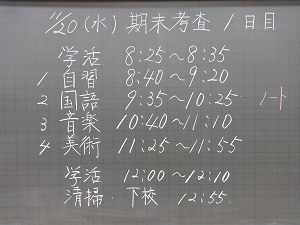 11/20(水) 期末考査 1日目
学活 8:25〜8:35
1 自習 8:40〜9:20
2 国語 9:35〜10:25 ノート
3 音楽 10:40〜11:10
4 美術 11:25〜11:55
学活 12:00〜12:10
清掃 下校 12:55